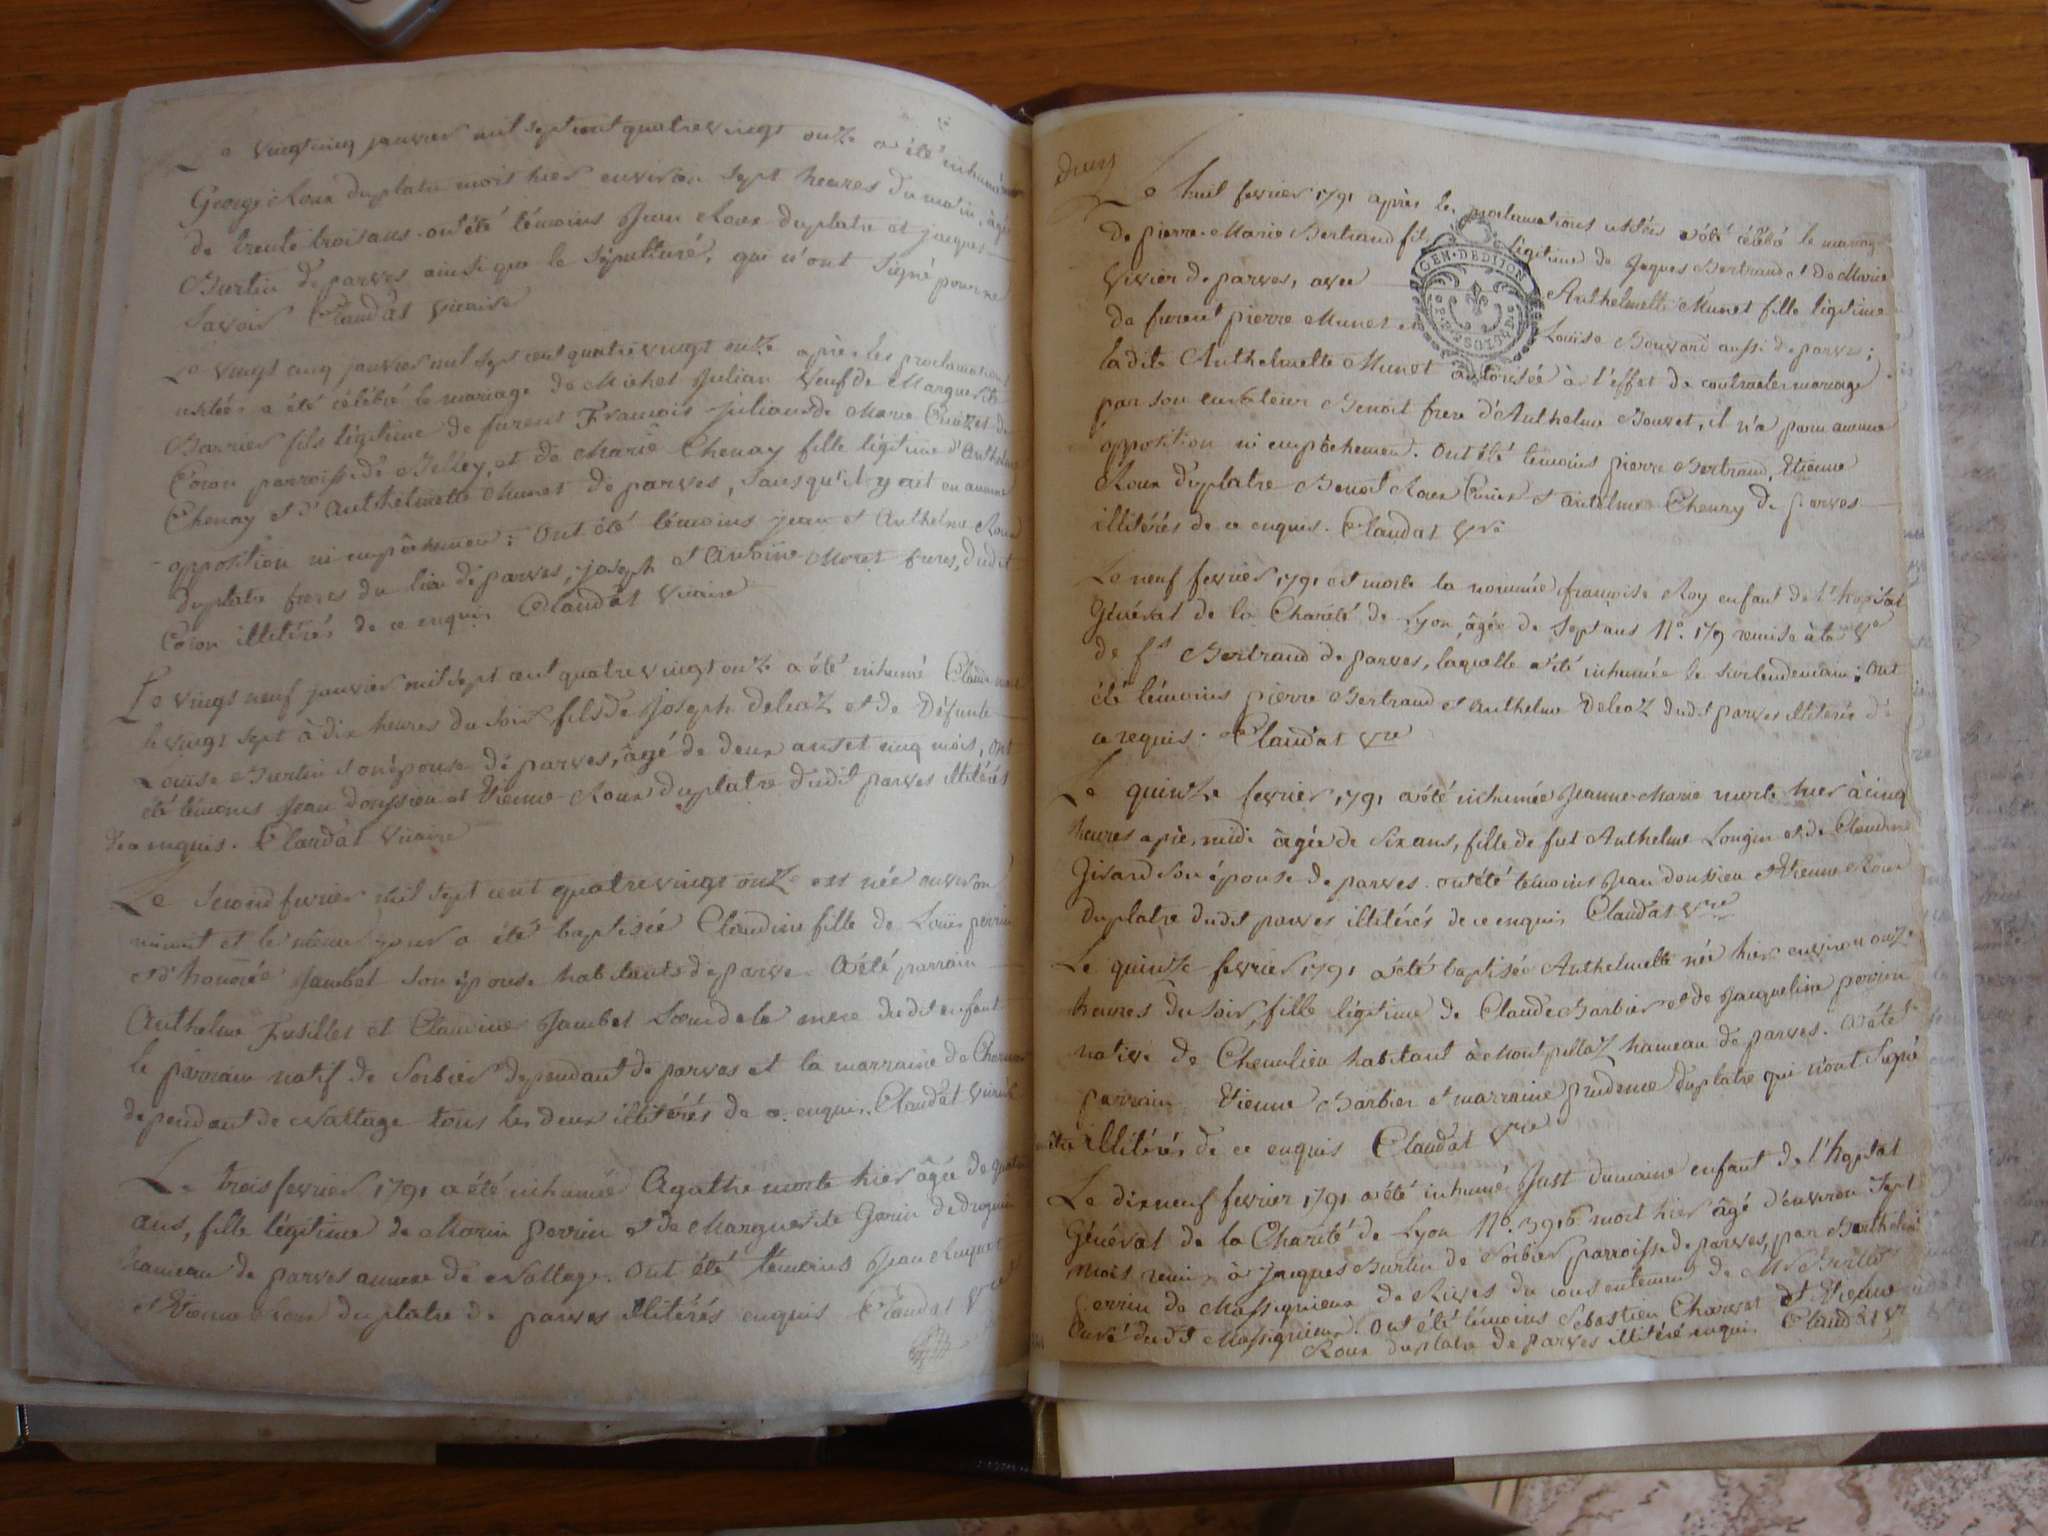 Le vingt cinq janvier mil sept cent quatre vingt onze a été inhumé
George Roux duplatre mort hier environ sept heures du matin, agé
de trente trois ans. ont été témoins Jean Roux duplatre et jacques
Burtin de parves ainsi que le sépulturé, qui n'ont signé pour ne
savoir Claudat vicaire
Le vingt cinq janvier mil sept cent quatre vingt onze après les proclamations
usitées a été célébré le mariage de Michel Julian veuf de Marguerite
Barrier fils légitime de furent François Julian et de Marie de
Coron parroisse de Belley, et de Marie Chenay fille légitime d'Anthelme
Chenay et d'Anthelmette Munet de parves, sans qu'il y ait eu aucune
opposition ni empêchemen: Ont été témoins jean et Anthelme Roux
duplatre freres du lieu de parves, joseph et Antoine Moret freres, dudit
Coron illitérés de ce enquis Claudat vicaire
Le vingt neuf janvier mil sept cent quatre vingt onze a été inhumé Claude mort
le vingt sept à dix heures du soir fils de Joseph deleaz et de défunte
Louise Burtin son épouse de parves, âgé de deux ans et cinq mois, ont
été témoins Jean doussieu et Etienne Roux duplatre dudit parves illitérés
de ce enquis. Claudat vicaire
Le second fevrier mil sept cent quatre vingt onze est née environ
minuit et le même jour a été baptisée Claudine fille de Louis perrin
et d'honorée Jambet son épouse habitants de parve. A été parrain
Anthelme Fusillet et Claudine Jambet soeur de la mere dudit enfant
le parrain natif de Sorbier dependant de parves et la marraine de
dependant de Nattage tous les deux illitérés de ce enquis. Claudat vicaire
Le trois fevrier 1791 a été inhumée Agathe morte hier âgée de quatre
ans, fille légitime de Morin perrin et de Marguerite Gorin de
hameau de parves annexe de Nattage. Ont été témoins Jean Luquet
et Etienne Roux duplatre de parves illitérés enquis Claudat Vre
deux
Le huit fevrier 1791 après les proclamations usitées a été célébré le mariage
de pierre-Marie Bertrand fils légitime de Jaques Bertrand et de Marie
Vivier de parves, avec Anthelmette Munet fille légitime
GEN. DE DIJON
de furent pierre Munet et Louise Bouvard aussi de parves;
ladite Anthelmette Munet autorisée à l'effet de contracter mariage
par son curateur Benoit frere d'Anthelme Bouvet, il n'a paru aucune
opposition ni empêchemen. Ont été témoins pierre Bertrand, Etienne
Roux duplatre Benoit Roux et Antelme Chenay de parves
illitérés de ce enquis. Claudat Vre
Le neuf fevrier 1791 est morte la nommée françoise Roy enfant de l'hopital
Général de la Charité de Lyon, âgée de sept ans N°. 179 remise à la Ve
de fs Bertrand de parves, laquelle a été inhumée le surlendemain; ont
été témoins pierre Bertrand et Anthelme Deleaz dudit parves illiterés de
ce requis. Claudat Vre
Le quinze fevrier 1791 a été inhumée Jeanne-Marie morte hier à cinq
heures après midi âgée de six ans, fille de fut Anthelme Longin et de Claudine
Girard son épouse de parves. ont été témoins Jean doussieu et Etienne Roux
duplatre dudit parves illitérés de ce enquis Claudat Vre
Le quinze fevrier 1791 a été baptisée Anthelmette née hier environ onze
heures du soir, fille légitime de Claude Barbier et de Jacqueline perrin
native de Chemilieu habitant à Montpellaz hameau de parves. A été
parrain Etienne Barbier et marraine prudence duplatre qui n'ont signé
illitérés de ce enquis Claudat Vre
Le dix neuf fevrier 1791 a été inhumé Just dumaine enfant de l'hopital
Général de la Charité de Lyon N°. 3916 mort hier âgé d'environ sept
mois remis à Jacques Burtin de Sorbier parroisse de parves, par Barthelmi
perrin de Massignieux de Rives du consentement de Mr
Curé dudit Massignieux. Ont été témoins Sébastien Charvet et Etienne
Roux duplatre de parves illitéré enquis Claudat Vre